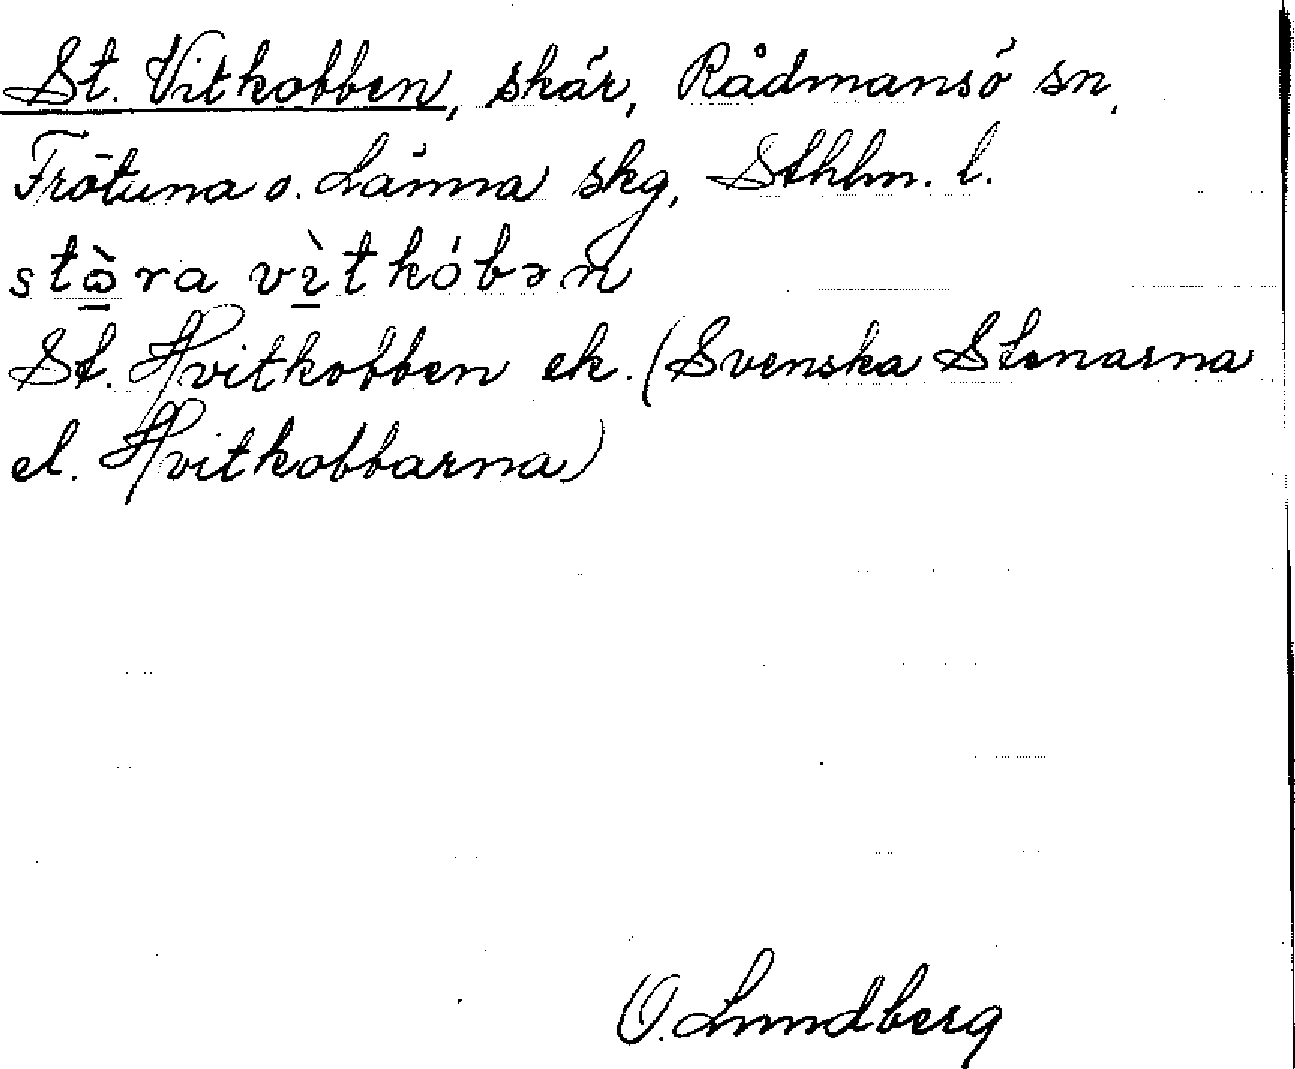 St. Vitkobben, skär, Rådmansö sn,
Frötuna o. Länna skg, Sthlm. l.
stὼ̲ra vì̲tkóbən
St. Hvitkobben ek. (Svenska Stenarna
el. Hvitkobbarna)
O. Lundberg